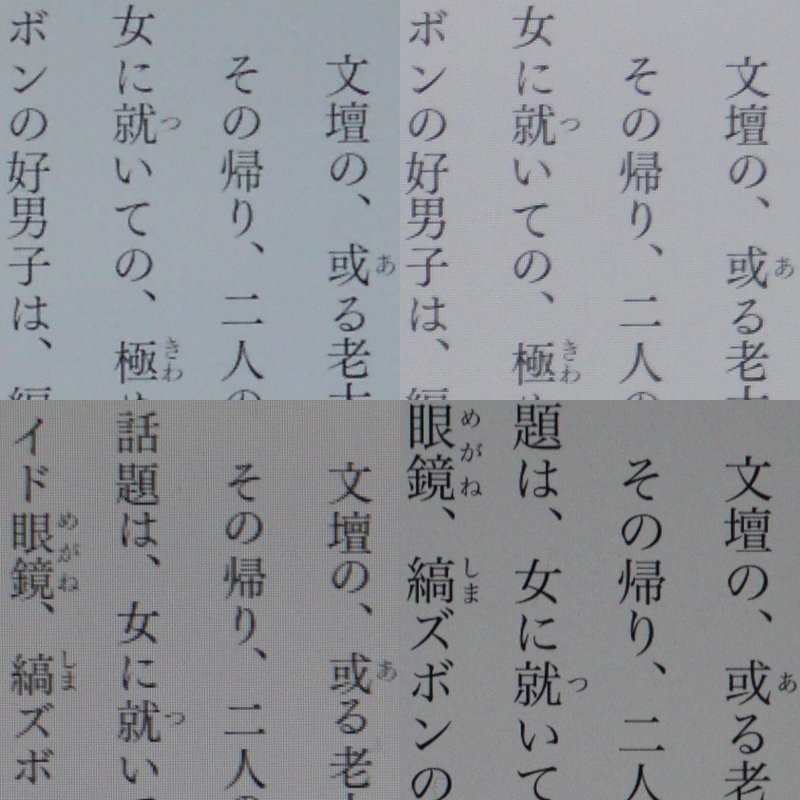 文壇の、或る老
あ
その帰り、二人
女に就いての、極
つ
きわ
ボンの好男子は、
文壇の、或る老
あ
その帰り、二人
女に就いての、極
つ
きわ
ボンの好男子は、
文壇の、或る老
あ
その帰り、二人
話題は、女に就い
つ
イド眼鏡、縞ズボ
めがね
しま
文壇の、或る老
あ
その帰り、二人
題は、女に就いて
つ
眼鏡、縞ズボンの
めがね
しま